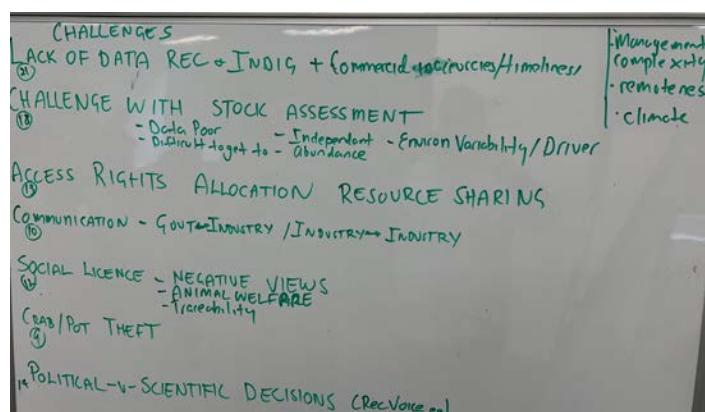 CHALLENGES
LACK OF DATA REC + INDIG + Commercial /timeliness
21
CHALLENGE WITH STOCK ASSESSMENT
18
- Data Poor
- Difficult to get to
- Independent abundance
- Environ Variability/Driver
ACCESS RIGHTS ALLOCATION RESOURCE SHARING
COMMUNICATION - GOVT INDUSTRY / INDUSTRY INDUSTRY
10
SOCIAL LICENCE - NEGATIVE VIEWS
- ANIMAL WELFARE
- Traceability
CRAB/POT THEFT
9
POLITICAL-V-SCIENTIFIC DECISIONS (Rec Voice
· Management complexity
· remotenes
· climate